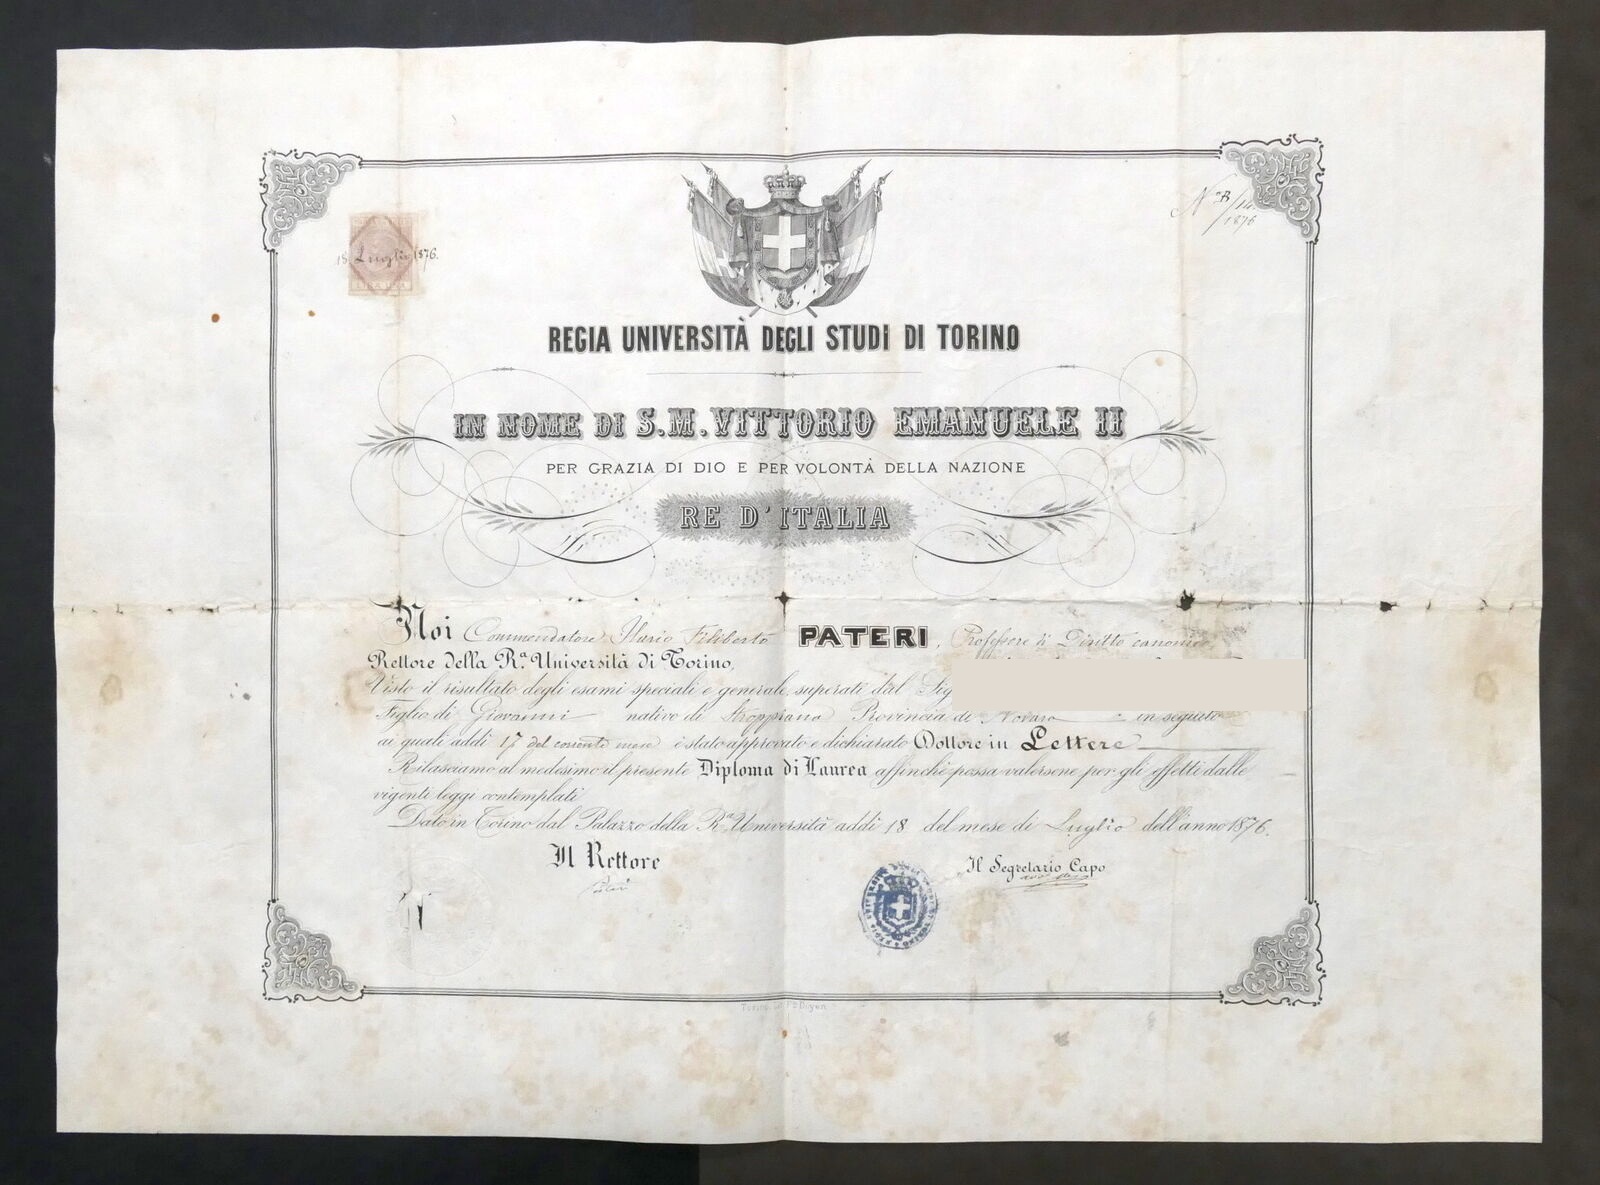 18 Luglio 1876.
LIRA UNA
1876
REGIA UNIVERSITÀ DEGLI STUDI DI TORINO
IN NOME DI S.M. VITTORIO EMANUELE II
PER GRAZIA DI DIO E PER VOLONTÀ DELLA NAZIONE
RE D'ITALIA
Noi Commendatore Ilario Filiberto PATERI, Professore di Diritto canonico
Rettore della R.ª Università di Torino,
Visto il risultato degli esami speciali e generale superati dal Sig
Figlio di Giovanni nativo di Stroppiana Provincia di Novara in seguito
ai quali addì 17 del corrente mese è stato approvato e dichiarato Dottore in Lettere
Rilasciamo al medesimo il presente Diploma di Laurea affinchè possa valersene per gli effetti dalle
vigenti leggi contemplati
Dato in Torino dal Palazzo della R.ª Università addì 18 del mese di Luglio dell'anno 1876.
Il Rettore
Pateri
Il Segretario Capo
Torino, Lit. F.lli Doyen